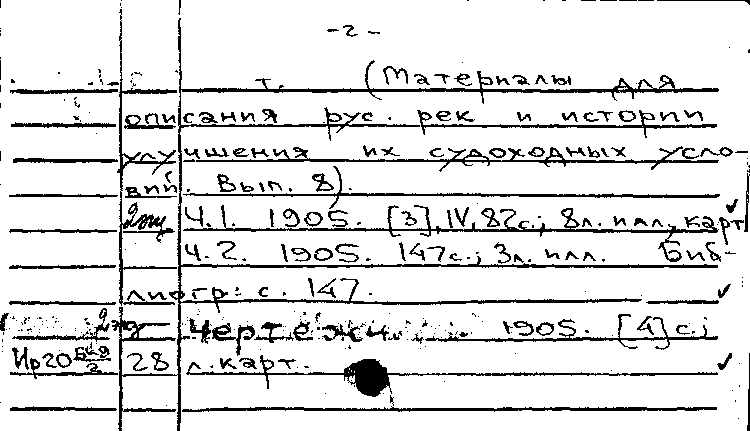 -2-
т. (Материалы для
описания рус. рек и истории
улучшения их судоходных усло-
вий. Вып. 8).
2эц Ч.1. 1905. [3], IV, 82с.; 8л. илл., карт
Ч.2. 1905. 147с.; 3л. илл. Биб-
лиогр: с. 147.
Чертежи. 1905. [4] с.;
28 л. карт.